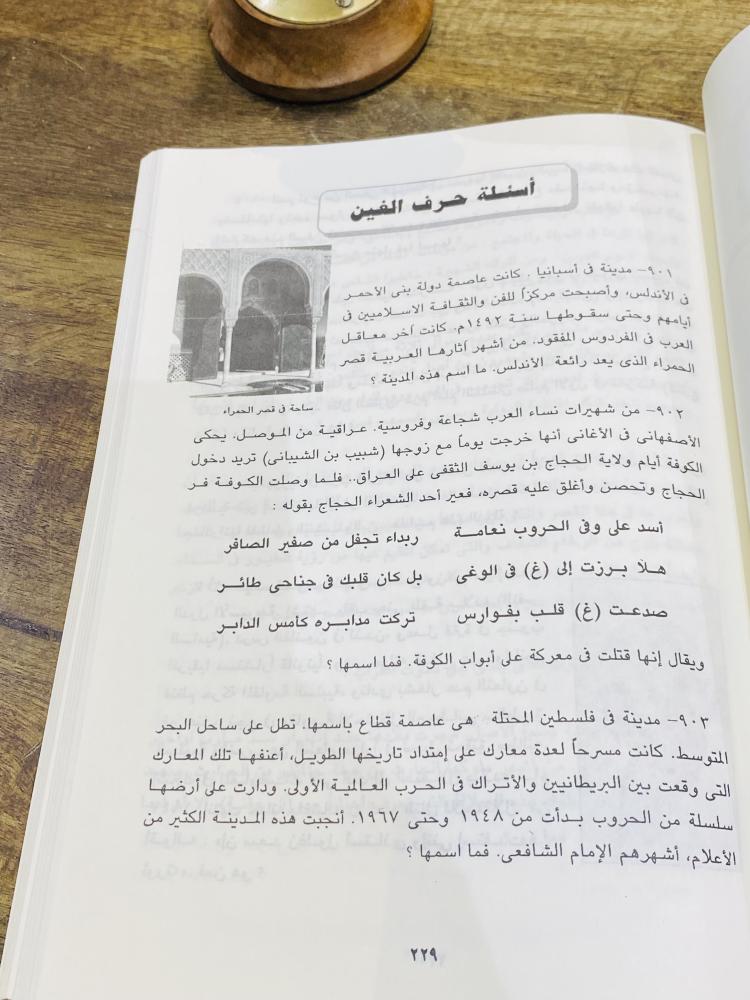 أسئلة حرف الغين
٩٠١- مدينة فى أسبانيا . كانت عاصمة دولة بنى الأحمر
فى الأندلس، وأصبحت مركزاً للفن والثقافة الاسلاميين فى
أيامهم وحتى سقوطها سنة ١٤٩٢م. كانت آخر معاقل
العرب فى الفردوس المفقود. من أشهر آثارها العربية قصر
الحمراء الذى يعد رائعة الأندلس. ما اسم هذه المدينة ؟
ساحة فى قصر الحمراء
٩٠٢- من شهيرات نساء العرب شجاعة وفروسية. عراقية من الموصل. يحكى
الأصفهانى فى الأغانى أنها خرجت يوماً مع زوجها (شبيب بن الشيبانى) تريد دخول
الكوفة أيام ولاية الحجاج بن يوسف الثقفى على العراق.. فلما وصلت الكوفة فر
الحجاج وتحصن وأغلق عليه قصره، فعير أحد الشعراء الحجاج بقوله :
أسد على وفى الحروب نعامة ربداء تجفل من صفير الصافر
هلا برزت إلى (غ) فى الوغى بل كان قلبك فى جناحى طائر
صدعت (غ) قلب بفوارس تركت مدابره كامس الدابر
ويقال إنها قتلت فى معركة على أبواب الكوفة. فما اسمها ؟
٩٠٣- مدينة فى فلسطين المحتلة . هى عاصمة قطاع باسمها. تطل على ساحل البحر
المتوسط. كانت مسرحاً لعدة معارك على إمتداد تاريخها الطويل، أعنفها تلك المعارك
التى وقعت بين البريطانيين والأتراك فى الحرب العالمية الأولى. ودارت على أرضها
سلسلة من الحروب بدأت من ١٩٤٨ وحتى ١٩٦٧. أنجبت هذه المدينة الكثير من
الأعلام، أشهرهم الإمام الشافعى. فما اسمها ؟
٢٢٩